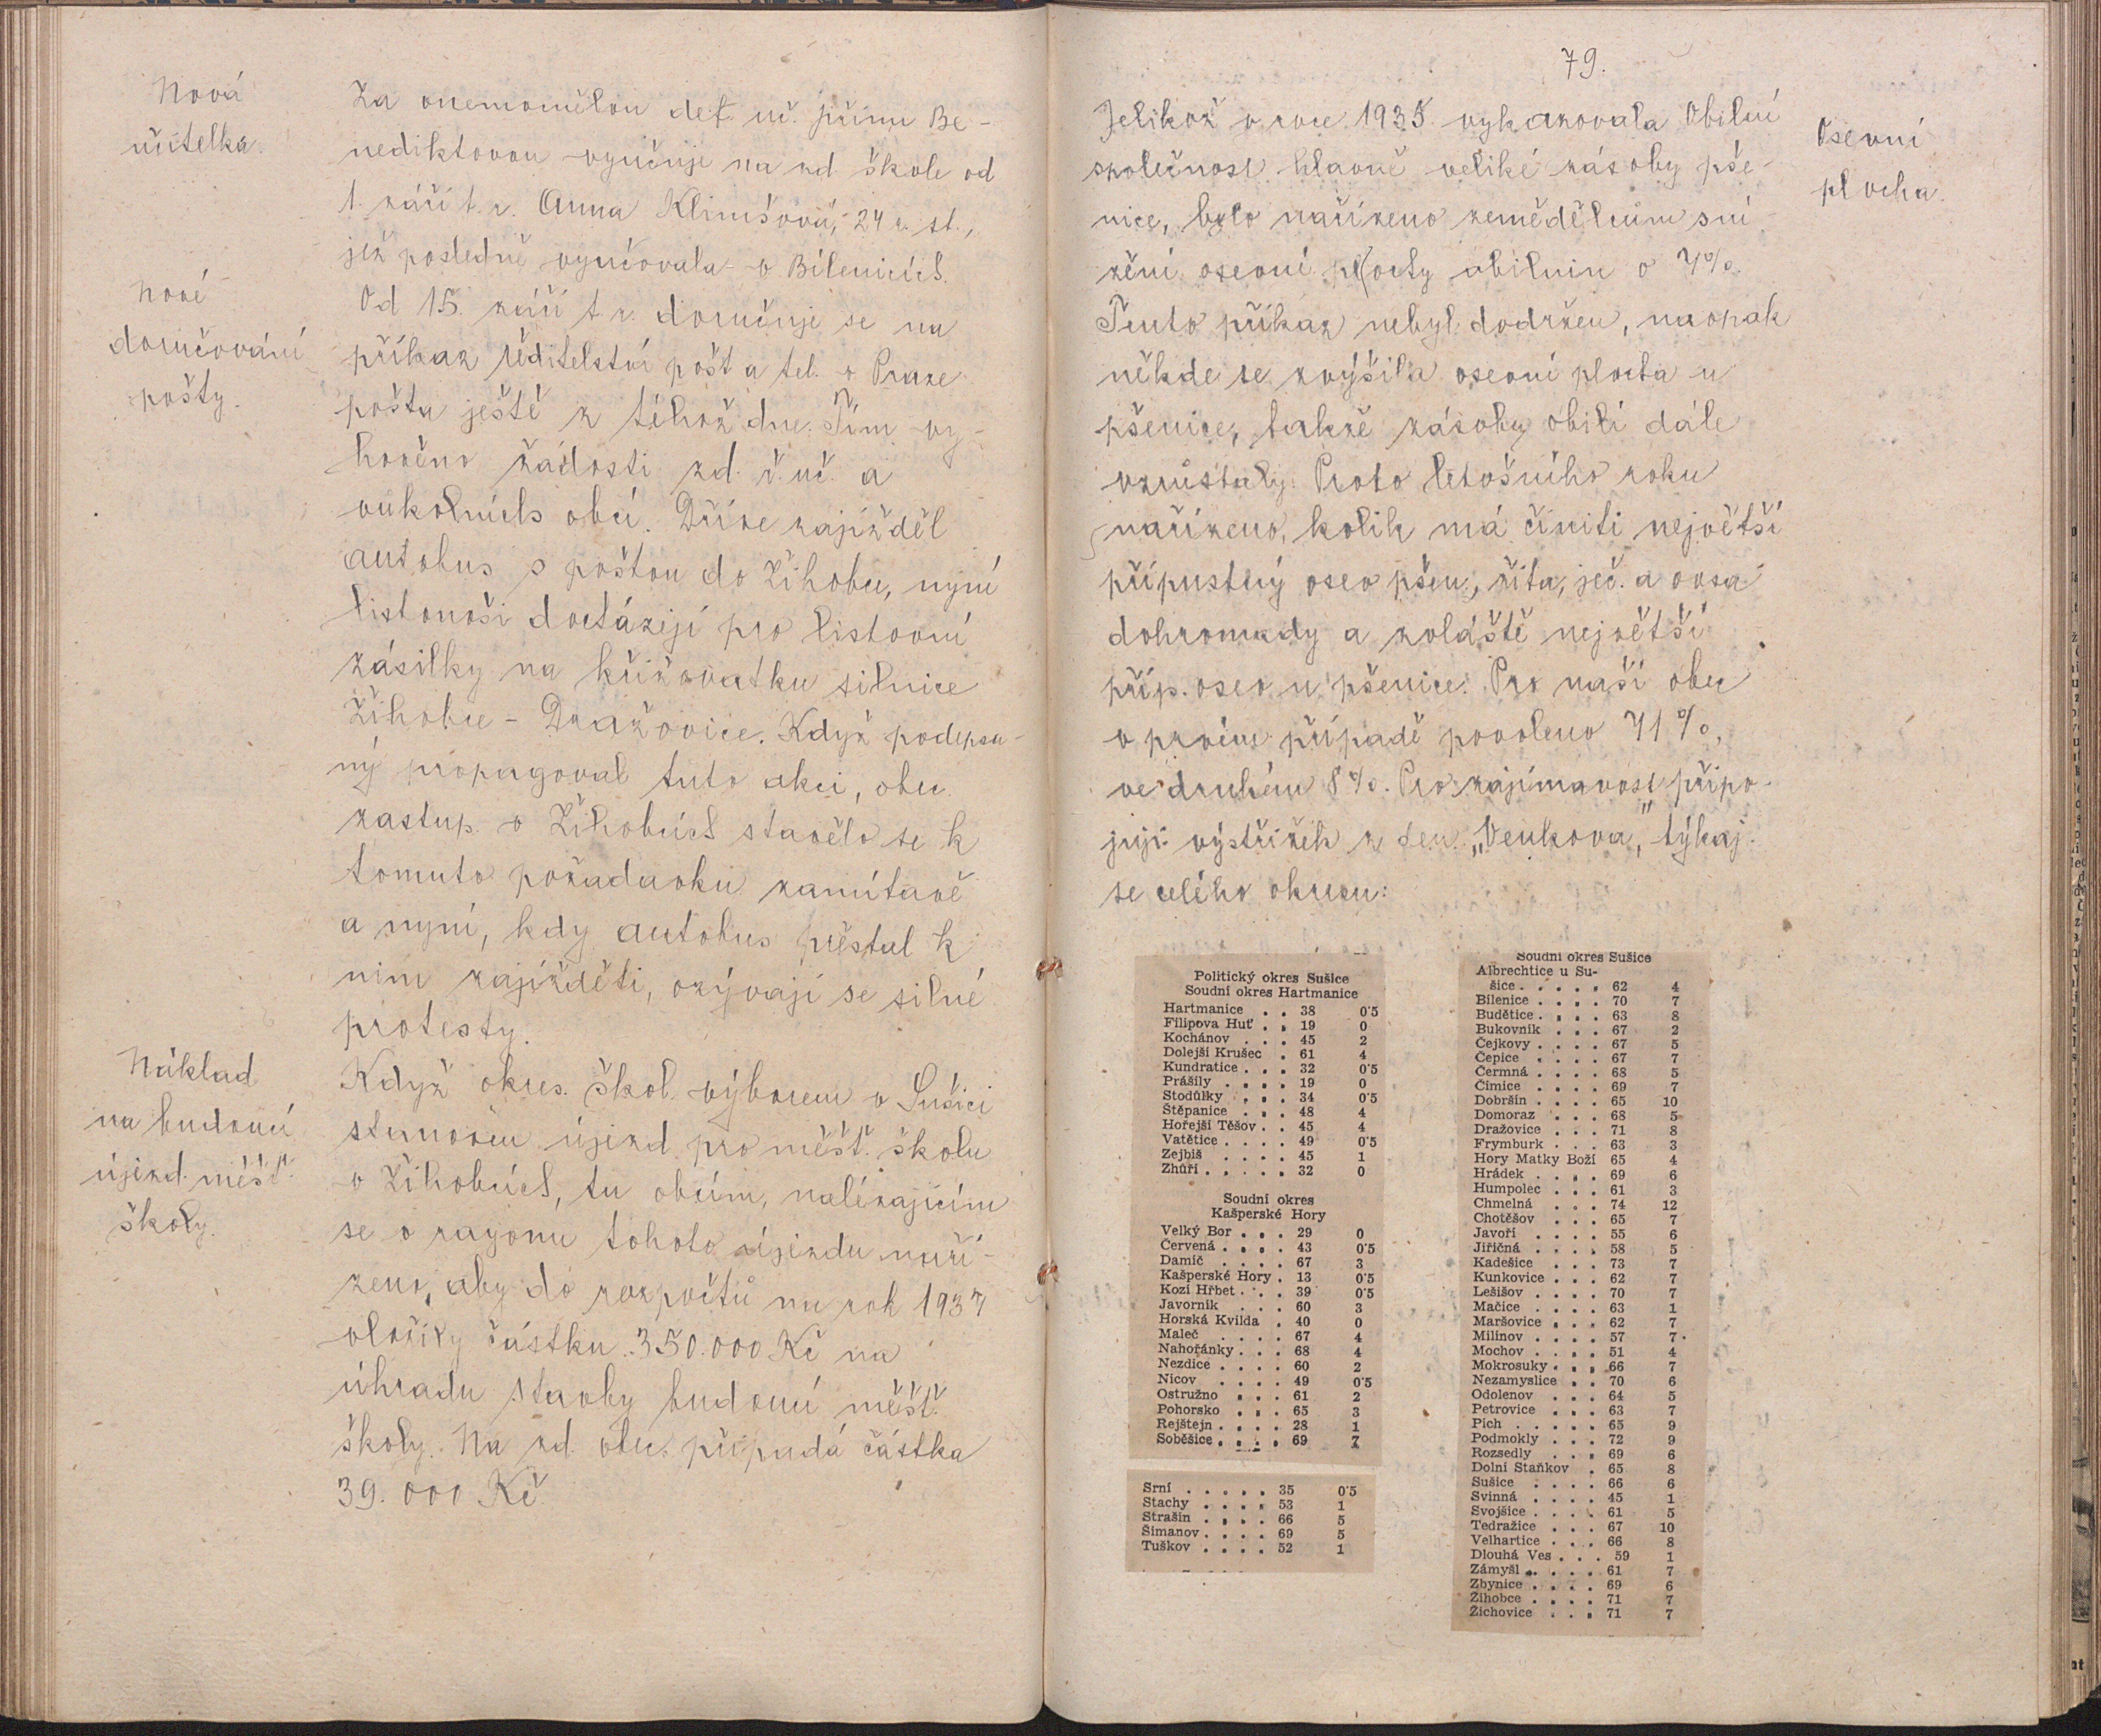 Nová
učitelka.
Za onemocnělou def. uč. pannu Be-
nediktovou vyučuje na zd. škole od
1. září t. r. Anna Klimšová, 24 r. st.,
jež posledně vyučovala v Bílenicích.
Nové
doručování
pošty.
Od 15. září t. r. doručuje se na
příkaz ředitelství pošt a tel. v Praze
pošta ještě z téhož dne. Tím vy-
hověno žádosti zd. ř. uč. a
vúkolních obcí. Dříve zajížděl
autobus s poštou do Žihobec, nyní
listonoši docházejí pro listovní
zásilky na křižovatku silnice
Žihobce - Dražovice. Když podepsa-
ný propagoval tuto akci, obec.
zastup. v Žihobcích stavělo se k
tomuto požadavku zamítavě
a nyní, kdy autobus přestal k
nim zajížděti, ozývají se silné
protesty.
Náklad
na budoucí
újezd. měšť.
školy.
Když okres. škol. výborem v Sušici
stanoven újezd pro měšť. školu
v Žihobcích, tu obcím, nalézajícím
se v rayonu tohoto újezdu naří-
zeno, aby do rozpočtů na rok 1937
vložily částku 350.000 Kč na
úhradu stavby budoucí měšť.
školy. Na zd. obec. připadá částka
39.000 Kč.
79.
Osevní
plocha.
Jelikož v roce 1935. vykazovala Obilní
společnost hlavně veliké zásoby pše-
nice, bylo nařízeno zemědělcům sní-
žení osevní plochy obilnin o 7%.
Tento příkaz nebyl dodržen, naopak
někde se zvýšila osevní plocha u
pšenice, takže zásoby obilí dále
vzrůstaly. Proto letošního roku
nařízeno, kolik má činiti největší
přípustný osev pšen., žita, ječ. a ovsa
dohromady a zvláště největší
příp. osev u pšenice. Pro naši obec
v prvém případě povoleno 71%,
ve druhém 8%. Pro zajímavost připo-
juji výstřižek z den. „Venkova", týkaj.
se celého okresu:
Politický okres Sušice
Soudní okres Hartmanice
Hartmanice . . 38 0'5
Filipova Huť . . 19 0
Kochánov . . . 45 2
Dolejší Krušec . 61 4
Kundratice . . . 32 0'5
Prášily . . . . 19 0
Stodůlky . . . 34 0'5
Štěpanice . . . 48 4
Hořejší Těšov . . 45 4
Vatětice . . . . 49 0'5
Zejbiš . . . . 45 1
Zhůří . . . . . 32 0
Soudní okres
Kašperské Hory
Velký Bor . . . 29 0
Červená . . . . 43 0'5
Damíč . . . . 67 3
Kašperské Hory . 13 0'5
Kozí Hřbet . . . 39 0'5
Javorník . . . 60 3
Horská Kvilda . 40 0
Maleč . . . . 67 4
Nahořánky . . . 68 4
Nezdice . . . . 60 2
Nicov . . . . 49 0'5
Ostružno . . . 61 2
Pohorsko . . . 65 3
Rejštejn . . . . 28 1
Soběšice . . . . 69 7
Srní . . . . . 35 0'5
Stachy . . . . 53 1
Strašín . . . . 66 5
Šimanov . . . . 69 5
Tuškov . . . . 52 1
Soudní okres Sušice
Albrechtice u Su-
šice . . . . . 62 4
Bílenice . . . . 70 7
Budětice . . . . 63 8
Bukovník . . . 67 2
Čejkovy . . . . 67 5
Čepice . . . . 67 7
Čermná . . . . 68 5
Čímice . . . . 69 7
Dobršín . . . . 65 10
Domoraz . . . 68 5
Dražovice . . . 71 8
Frymburk . . . 63 3
Hory Matky Boží 65 4
Hrádek . . . . 69 6
Humpolec . . . 61 3
Chmelná . . . 74 12
Chotěšov . . . 65 7
Javoří . . . . 55 6
Jiřičná . . . . 58 5
Kadešice . . . 73 7
Kunkovice . . . 62 7
Lešišov . . . . 70 7
Mačice . . . . 63 1
Maršovice . . . 62 7
Milínov . . . . 57 7
Mochov . . . . 51 4
Mokrosuky . . . 66 7
Nezamyslice . . 70 6
Odolenov . . . 64 5
Petrovice . . . 63 7
Pich . . . . . 65 9
Podmokly . . . 72 9
Rozsedly . . . 69 6
Dolní Staňkov . 65 8
Sušice . . . . 66 6
Svinná . . . . 45 1
Svojšice . . . . 61 5
Tedražice . . . 67 10
Velhartice . . . 66 8
Dlouhá Ves . . . 59 1
Zámyšl . . . . 61 7
Zbynice . . . . 69 6
Žihobce . . . . 71 7
Žichovice . . . 71 7